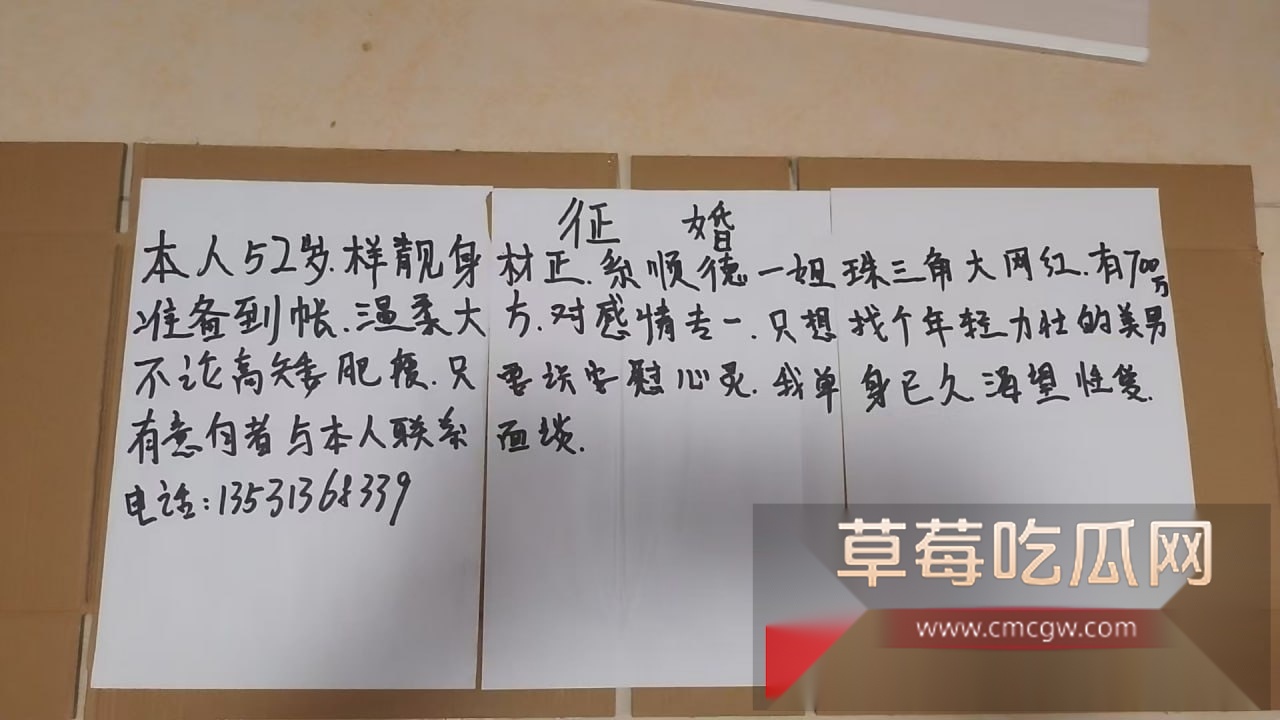 征 婚
本人52岁.样靓身材正.系顺德一姐珠三角大网红.有700万
准备到帐.温柔大方.对感情专一.只想找个年轻力壮的美男
不论高矮肥瘦.只要谈安慰心灵.我单身已久渴望性爱.
有意向者与本人联系面谈.
电话:13531368339
草莓吃瓜网
www.cmcgw.com